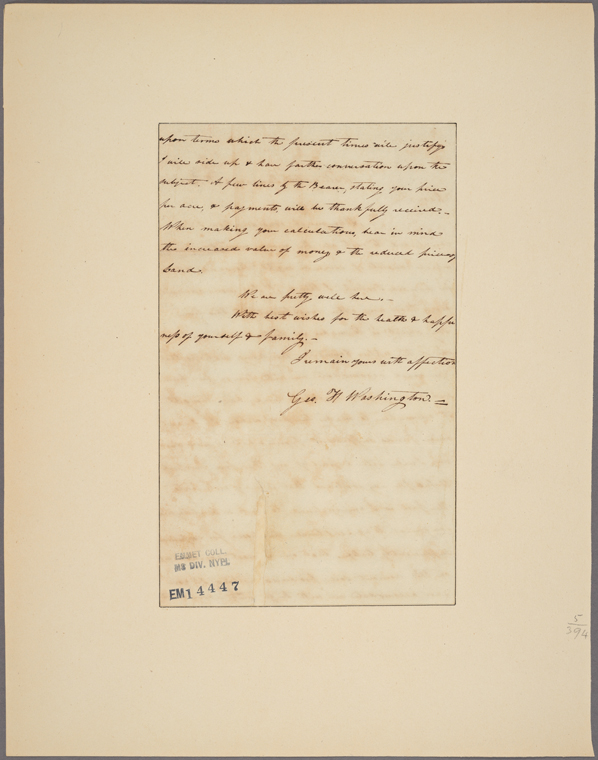 upon terms which the present times will justify
I will ride up & have further conversation upon the
subject. A few lines by the Bearer, stating your price
per acre, & payments, will be thankfully received.–
When making your calculations, bear in mind
the increased value of money & the reduced price of
Land.
We are pretty well here.–
With best wishes for the health & happi
ness of yourself & family.–
I remain yours with affection
Geo. Washington.=
EMMET COLL.
MS DIV. NYPL
EM14447
5
394